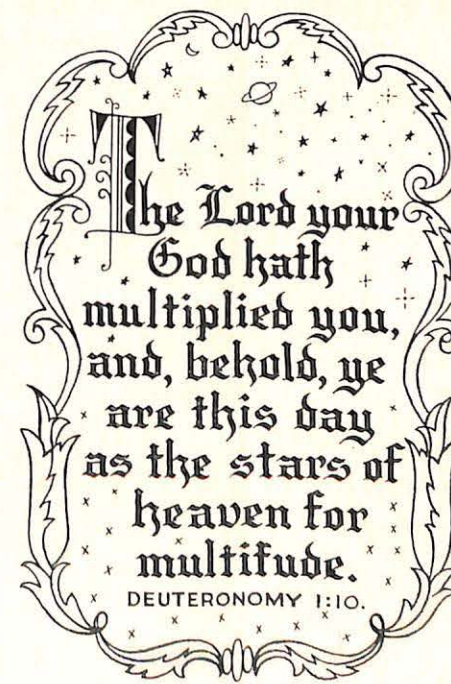 The Lord your
God hath
multiplied you,
and, behold, ye
are this day
as the stars of
heaven for
multitude.
DEUTERONOMY 1:10.